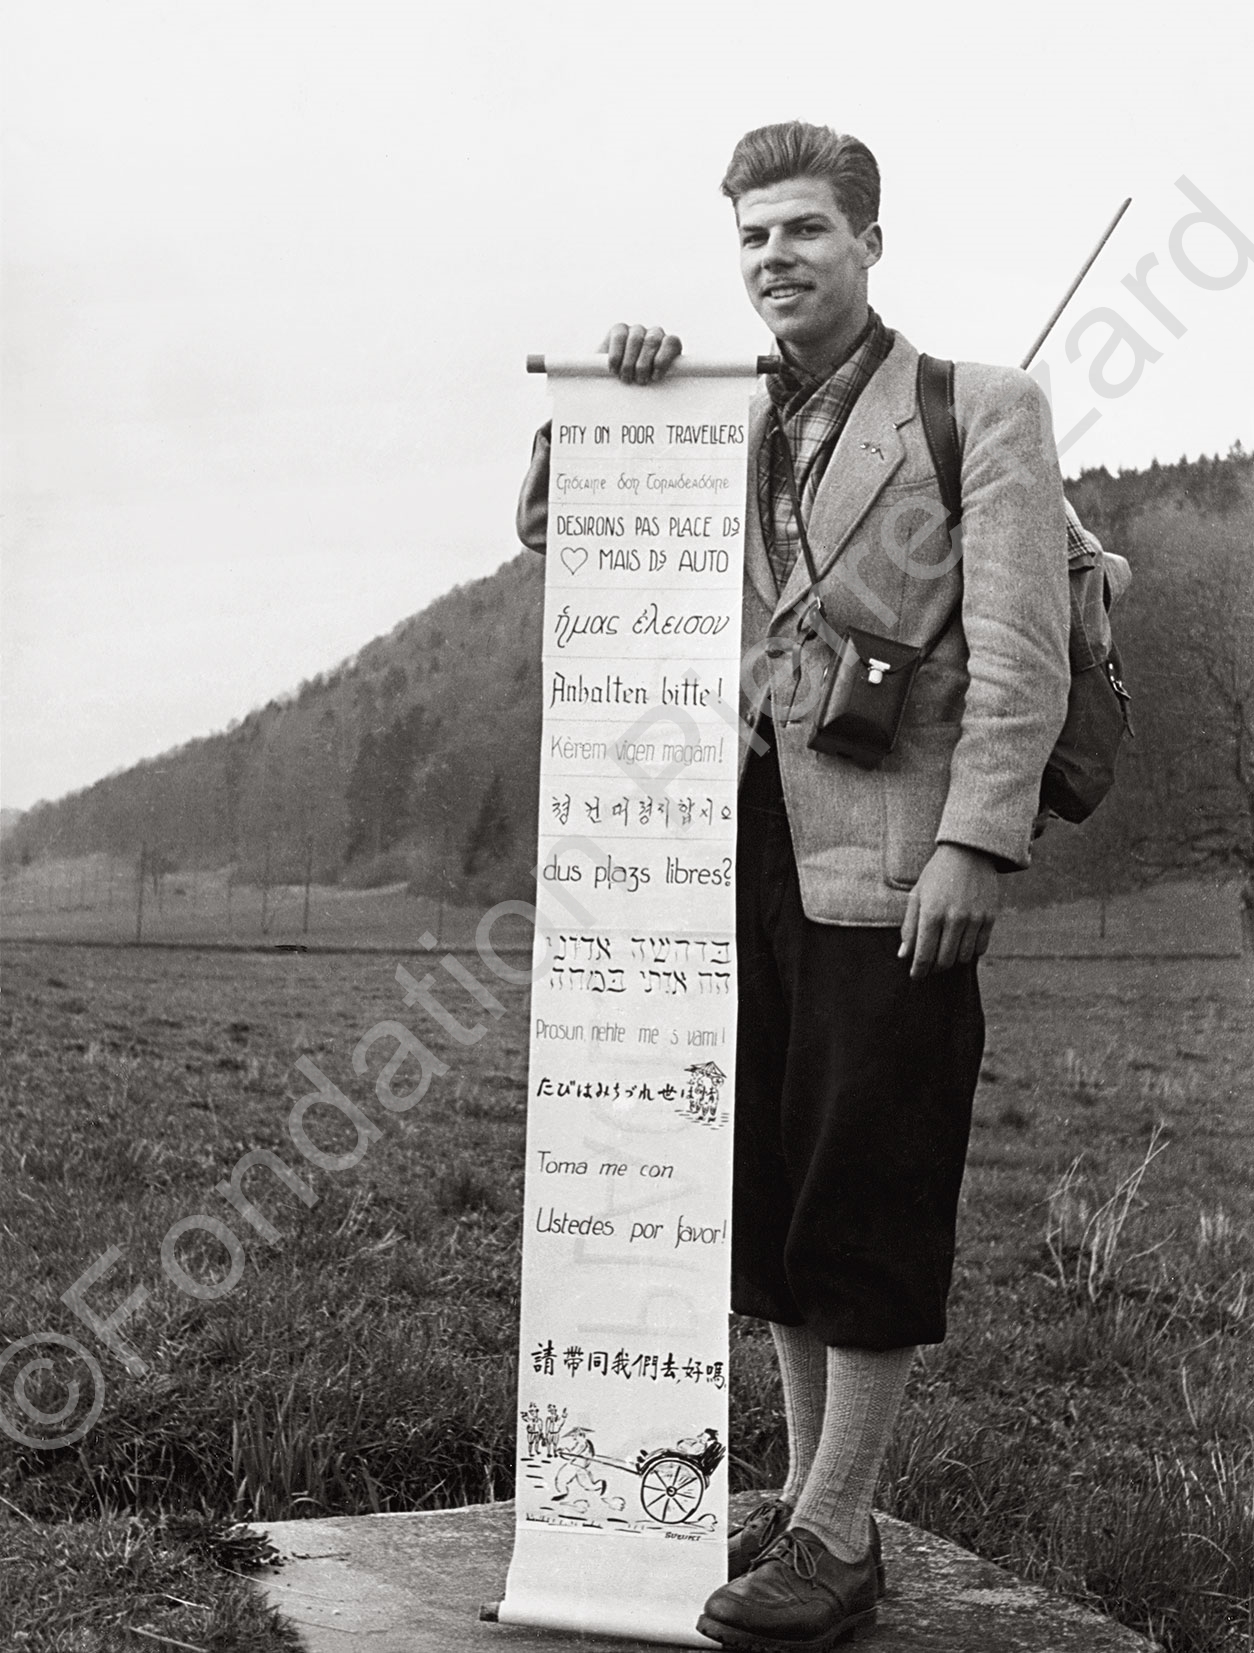 PITY ON POOR TRAVELLERS
Trócaire don
DESIRONS PAS PLACE Dˢ
♡ MAIS Dˢ AUTO
ἡμας ἐλεισον
Anhalten bitte!
Kèrem vigen magàm!
dus plazs libres?
אותי במחה
Prosun, nehte me s vami!
たびはみちづれ世は
Toma me con
Ustedes por favor!
請帶同我們去,好嗎,
©Fondation Pierre Izard